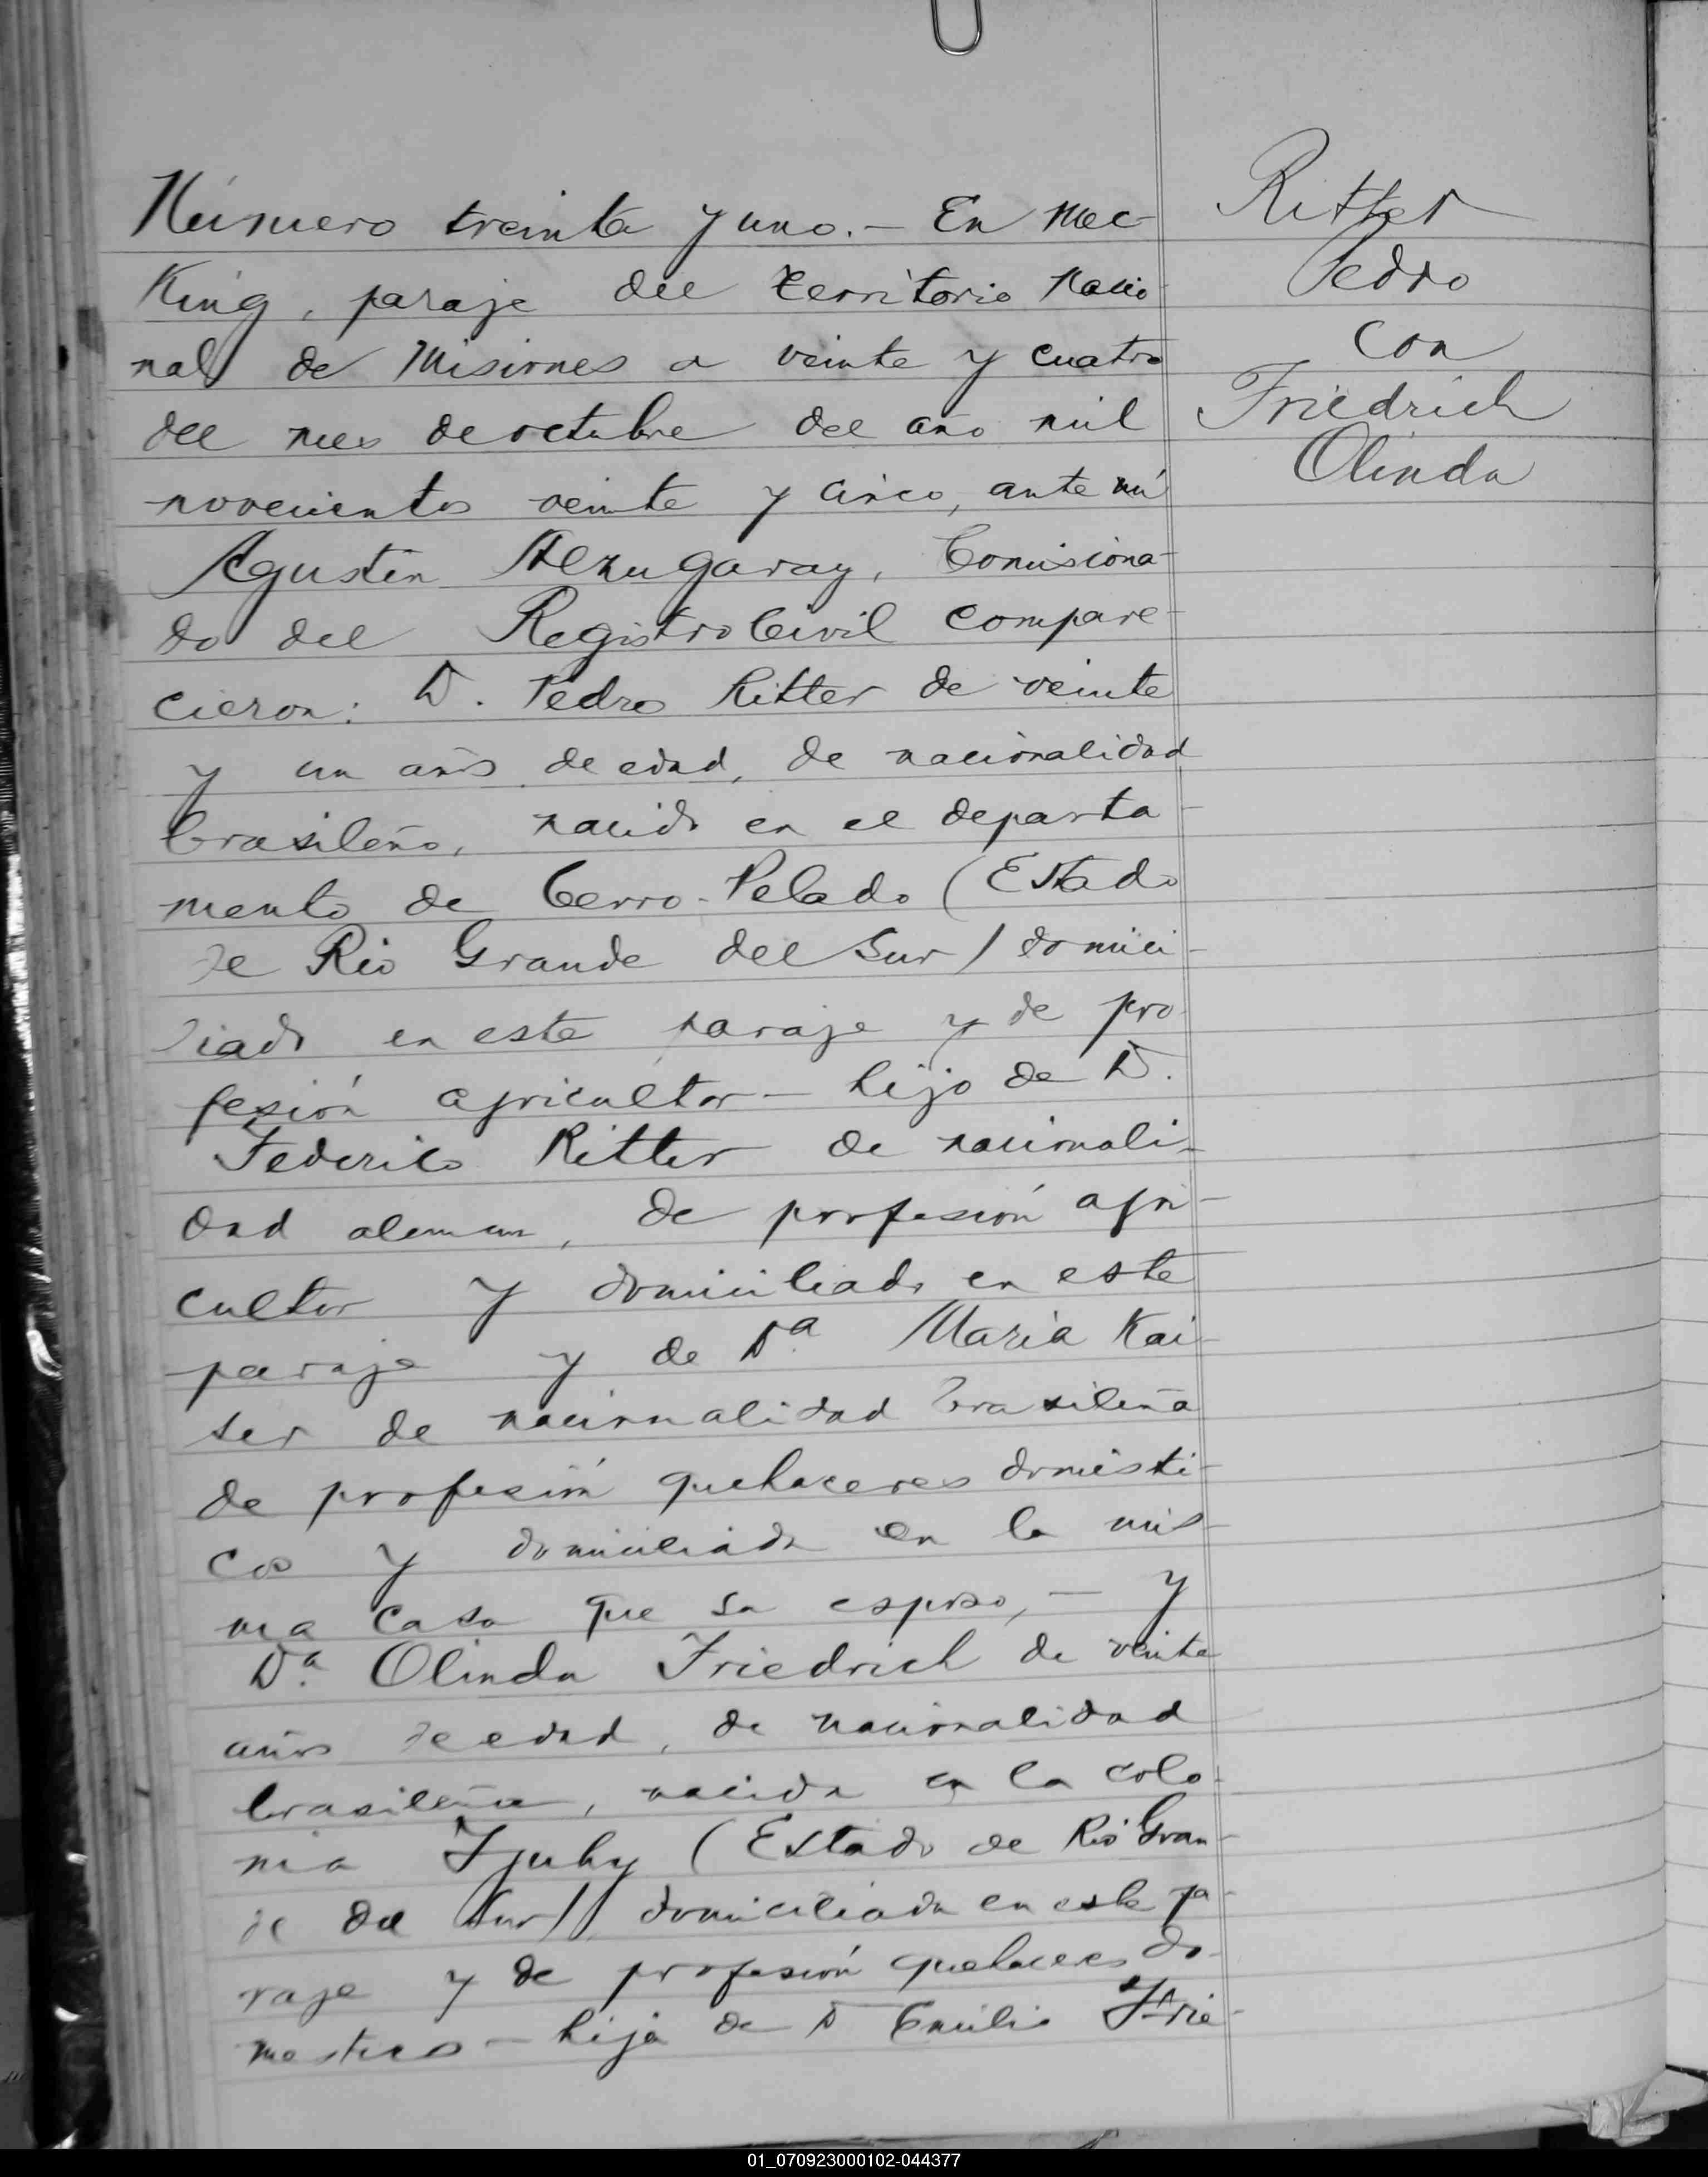 Número treinta y uno.- En Mec-
King, paraje del territorio Nacio
nal de Misiones a veinte y cuatro
del mes de octubre del año mil
novecientos veinte y cinco, ante mí
Agustín Alzugaray, Comisiona-
do del Registro Civil compare-
cieron: D. Pedro Ritter de veinte
y un años de edad, de nacionalidad
brasileño, nacido en el departa-
mento de Cerro-Pelado (Estado
de Rio Grande del Sur) domici-
liado en este paraje y de pro
fesión agricultor - hijo de D.
Federico Ritter de nacionali-
dad aleman, de profesión agri-
cultor y domiciliado en este
paraje y de Da. María Kai-
ser de nacionalidad brasileña
de profesión quehaceres domésti-
cos y domiciliada en la mis-
ma casa que su esposo, - y
Da. Olinda Friedrich de veinte
años de edad, de nacionalidad
brasileña, nacida en la colo-
nia Ijuhy (Estado de Rio Gran-
de del Sur) domiciliada en este pa-
raje y de profesión quehaceres do-
mesticos - hija de D Emilio Frie-
Ritter
Pedro
con
Friedrich
Olinda
01_070923000102-044377